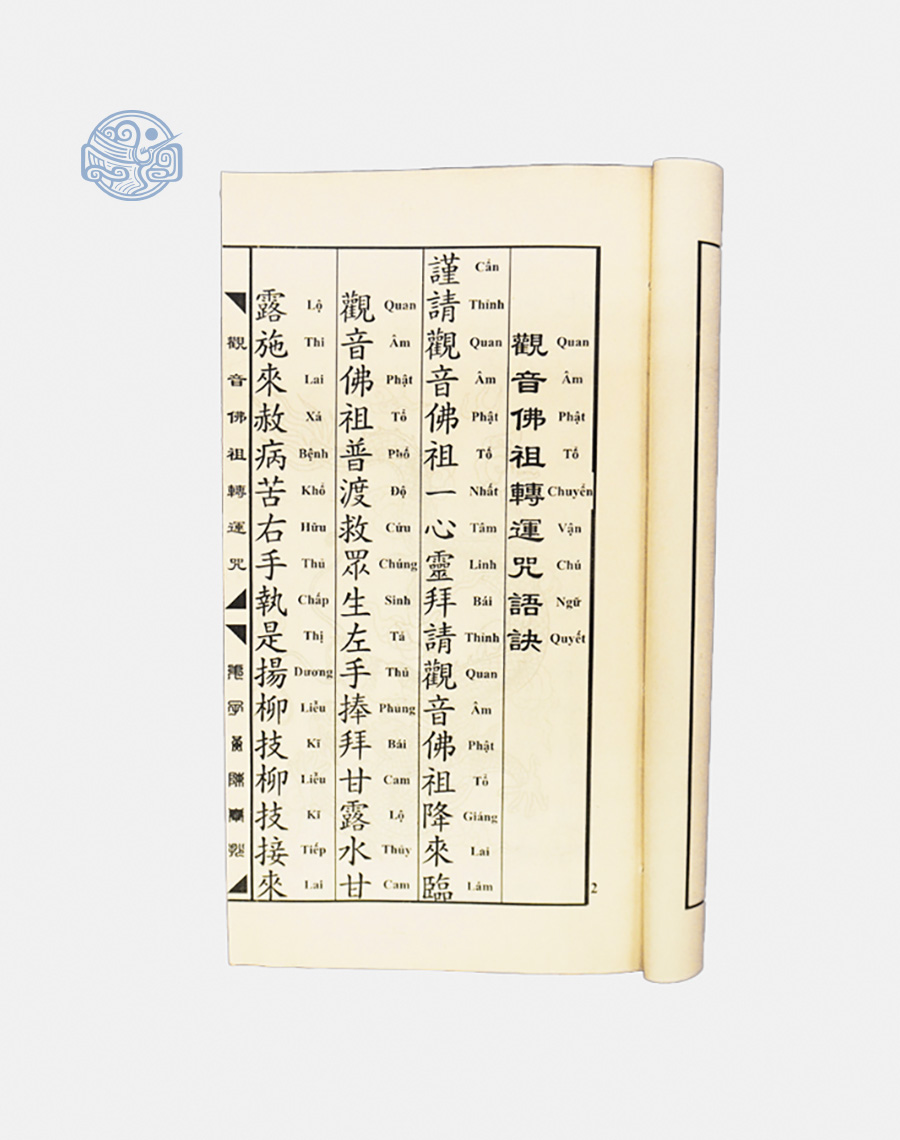 觀音佛祖轉運咒語訣
Quan Âm Phật Tổ Chuyển Vận Chú Ngữ Quyết
謹請觀音佛祖一心靈拜請觀音佛祖降來臨
Cẩn Thỉnh Quan Âm Phật Tổ Nhất Tâm Linh Bái Thỉnh Quan Âm Phật Tổ Giáng Lai Lâm
觀音佛祖普渡救眾生左手捧拜甘露水甘
Quan Âm Phật Tổ Phổ Độ Cứu Chúng Sinh Tả Thủ Phủng Bái Cam Lộ Thủy Cam
露施來赦病苦右手執是揚柳技柳技接來
Lộ Thi Lai Xá Bệnh Khổ Hữu Thủ Chấp Thị Dương Liễu Kĩ Liễu Kĩ Tiếp Lai
觀音佛祖轉運咒
2